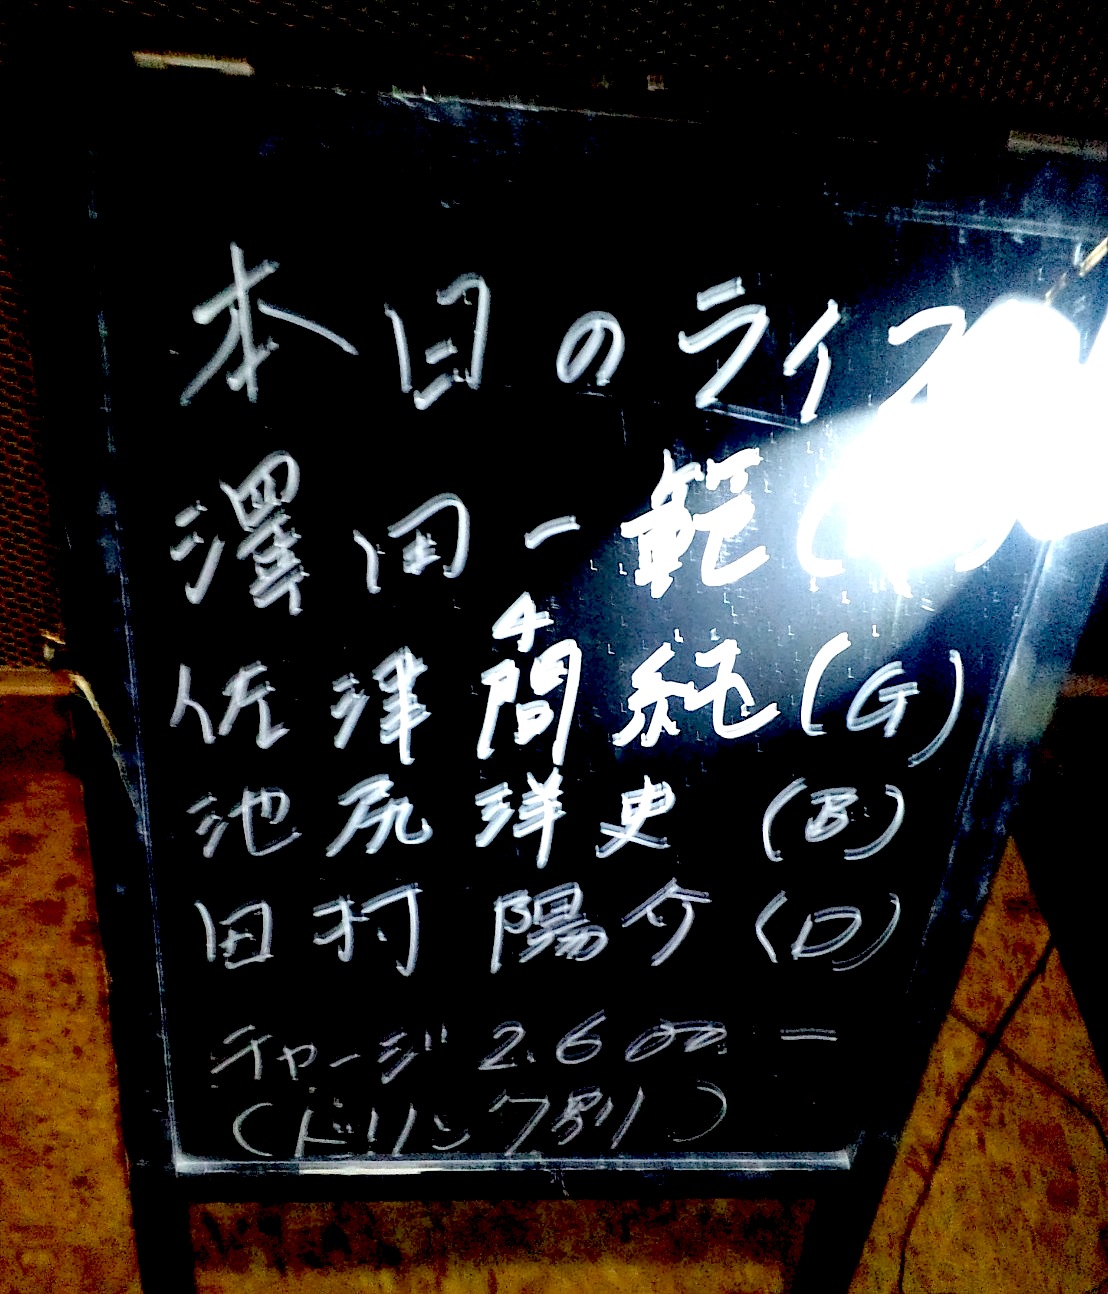 本日のライブ
澤田一範
4
佐津間純(G)
池尻洋史(B)
田村陽介(D)
チャージ2.600=
(ドリンク別)